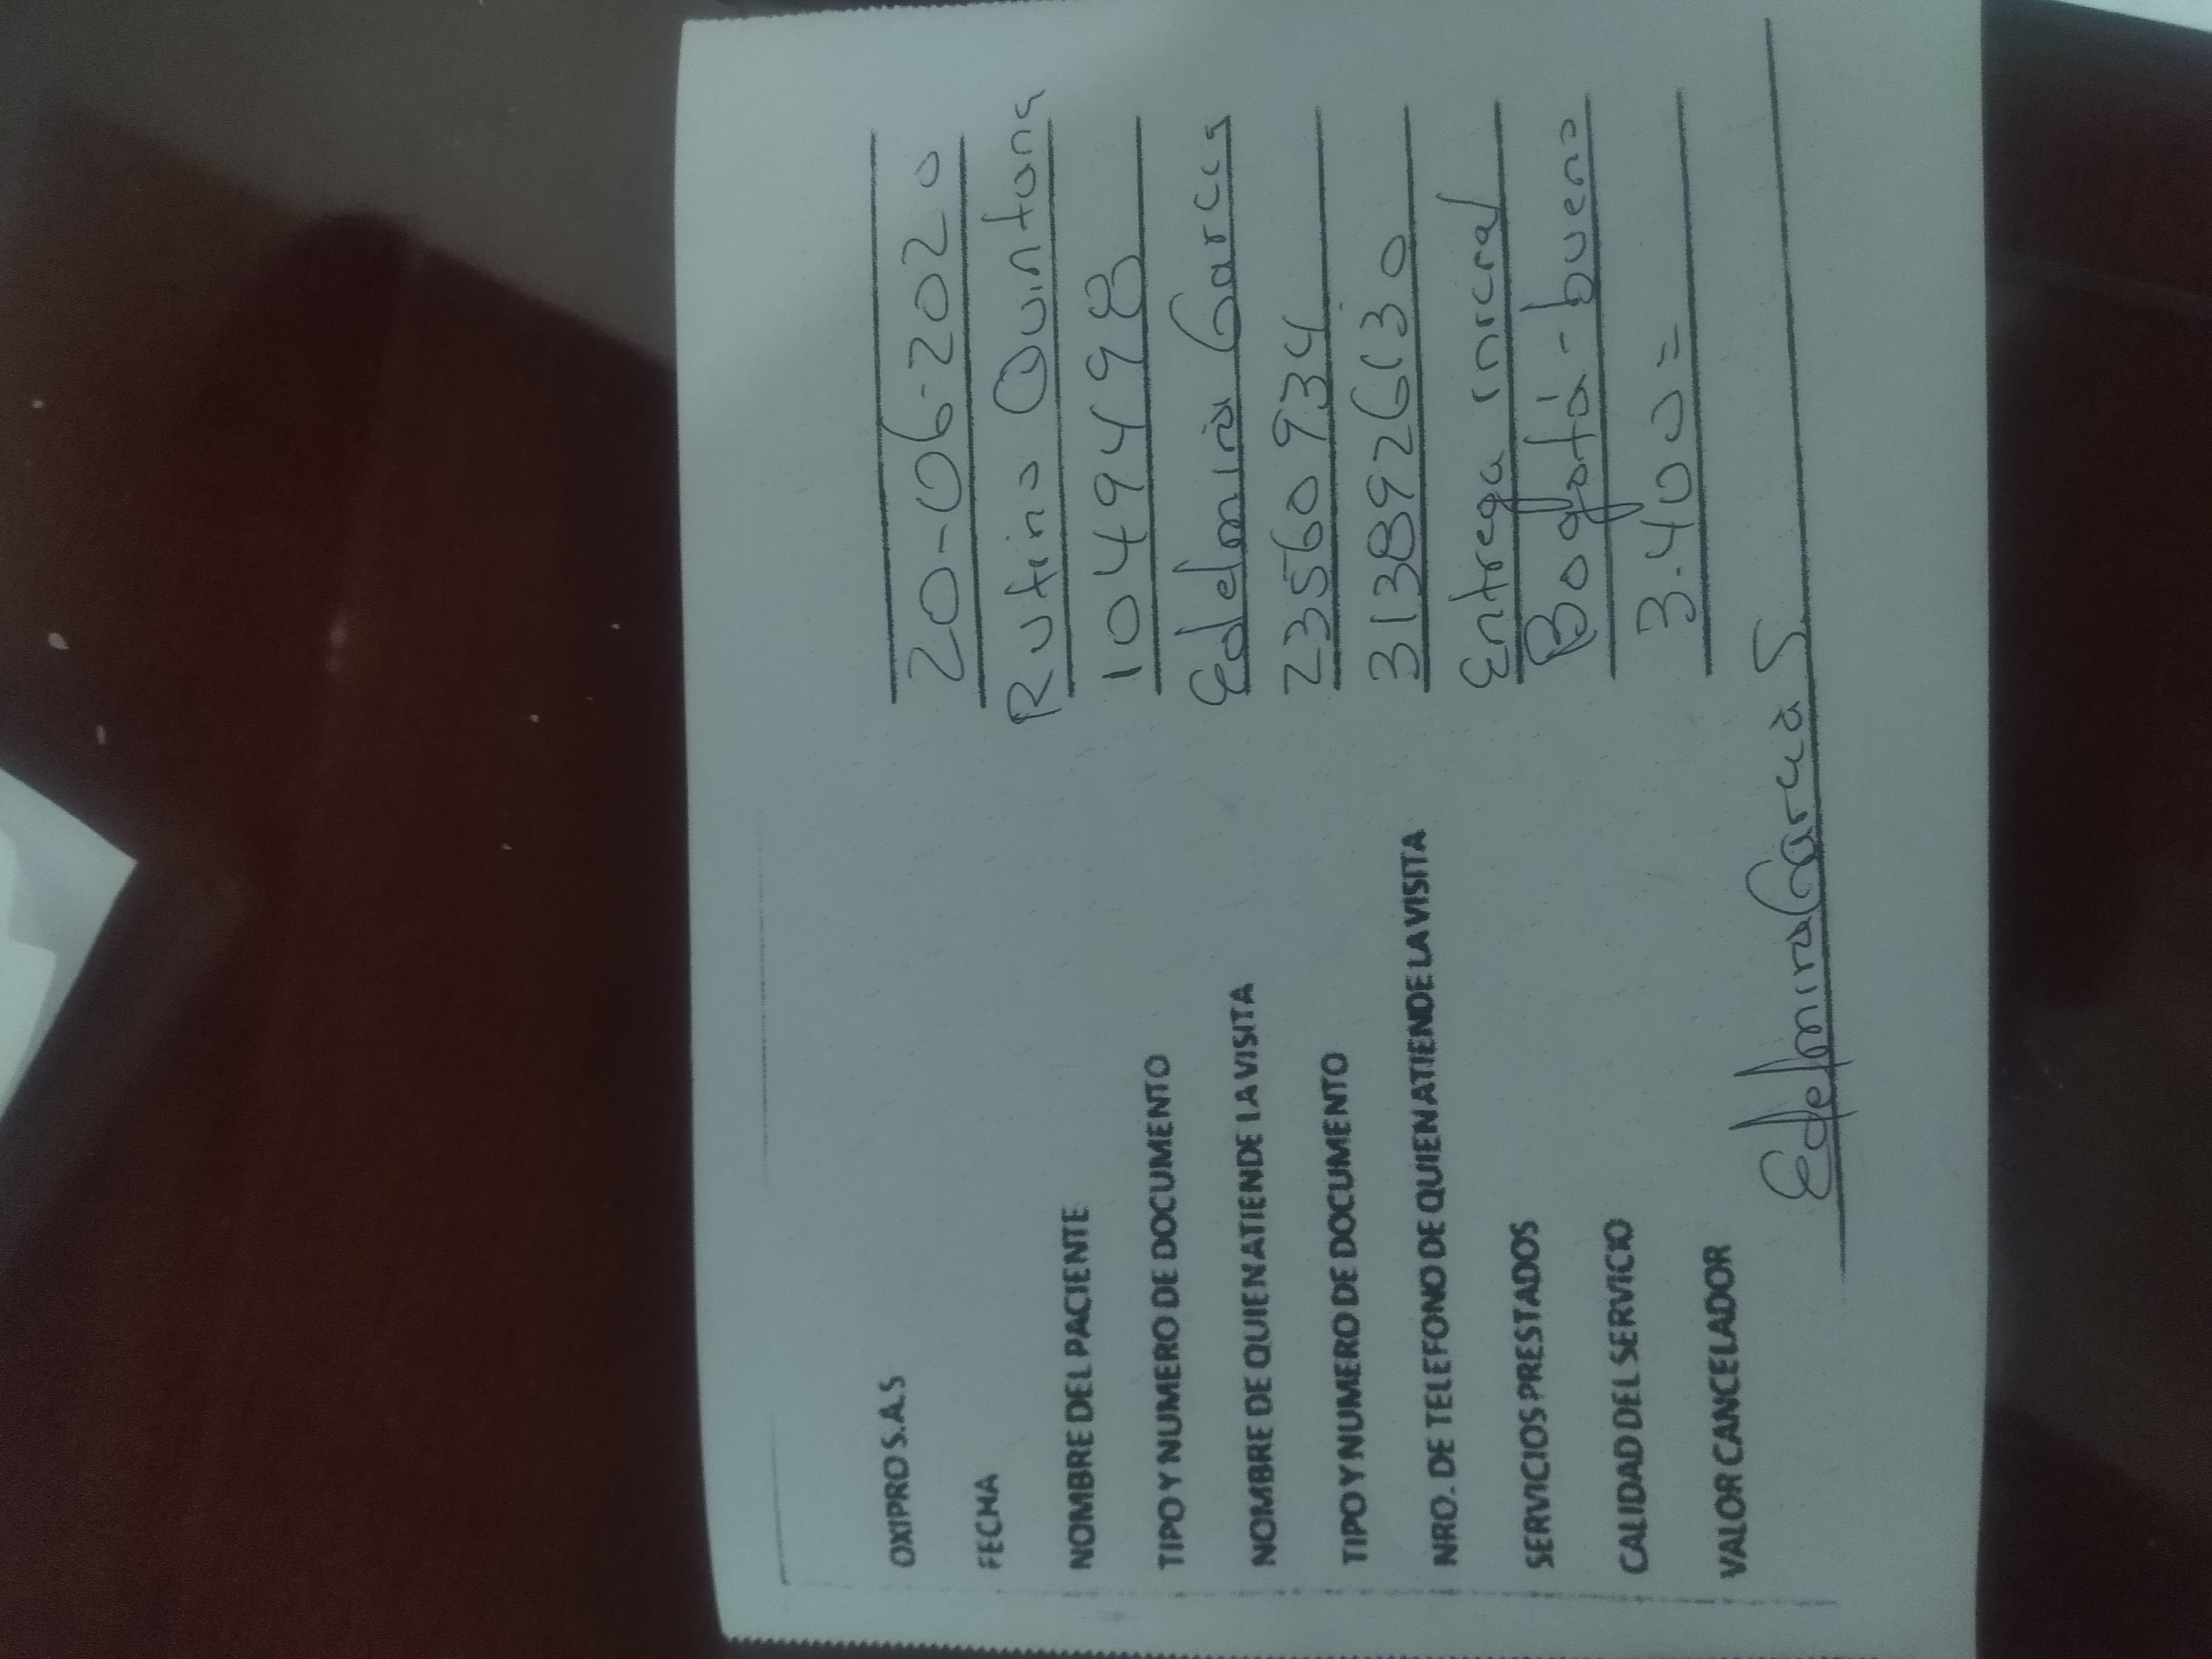 OXIPRO S.A.S
FECHA 20-06-2020
NOMBRE DEL PACIENTE Rufino Quintana
TIPO Y NUMERO DE DOCUMENTO 1049498
NOMBRE DE QUIEN ATIENDE LA VISITA Edelmira Garcia
TIPO Y NUMERO DE DOCUMENTO 23560934
NRO. DE TELEFONO DE QUIEN ATIENDE LA VISITA 3138926130
SERVICIOS PRESTADOS Entrega inicial
CALIDAD DEL SERVICIO Bogotá - bueno
VALOR CANCELADOR 3.400=
Edelmira Garcia S